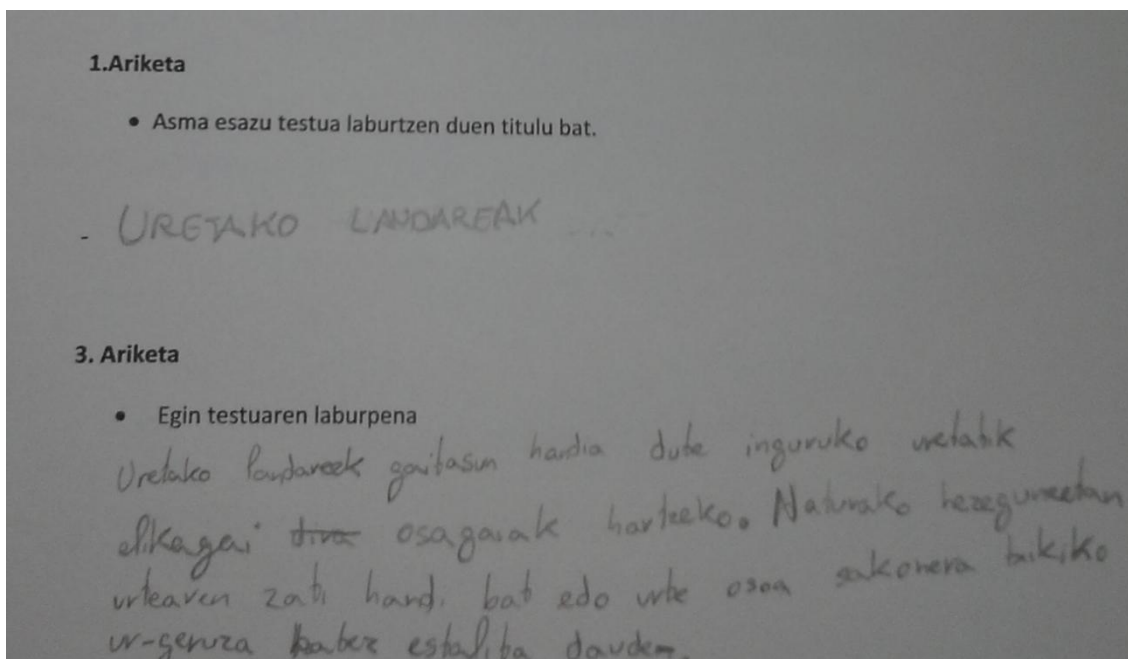 1.Ariketa
• Asma esazu testua laburtzen duen titulu bat.
- URETAKO LANDAREAK ...
3. Ariketa
• Egin testuaren laburpena
Uretako landareek gaitasun handia dute inguruko uretatik
elikagai osagaiak hartzeko. Naturako hezeguneetan
urtearen zati handi bat edo urte osoa sakonera txikiko
ur-geruza batez estalita dauden